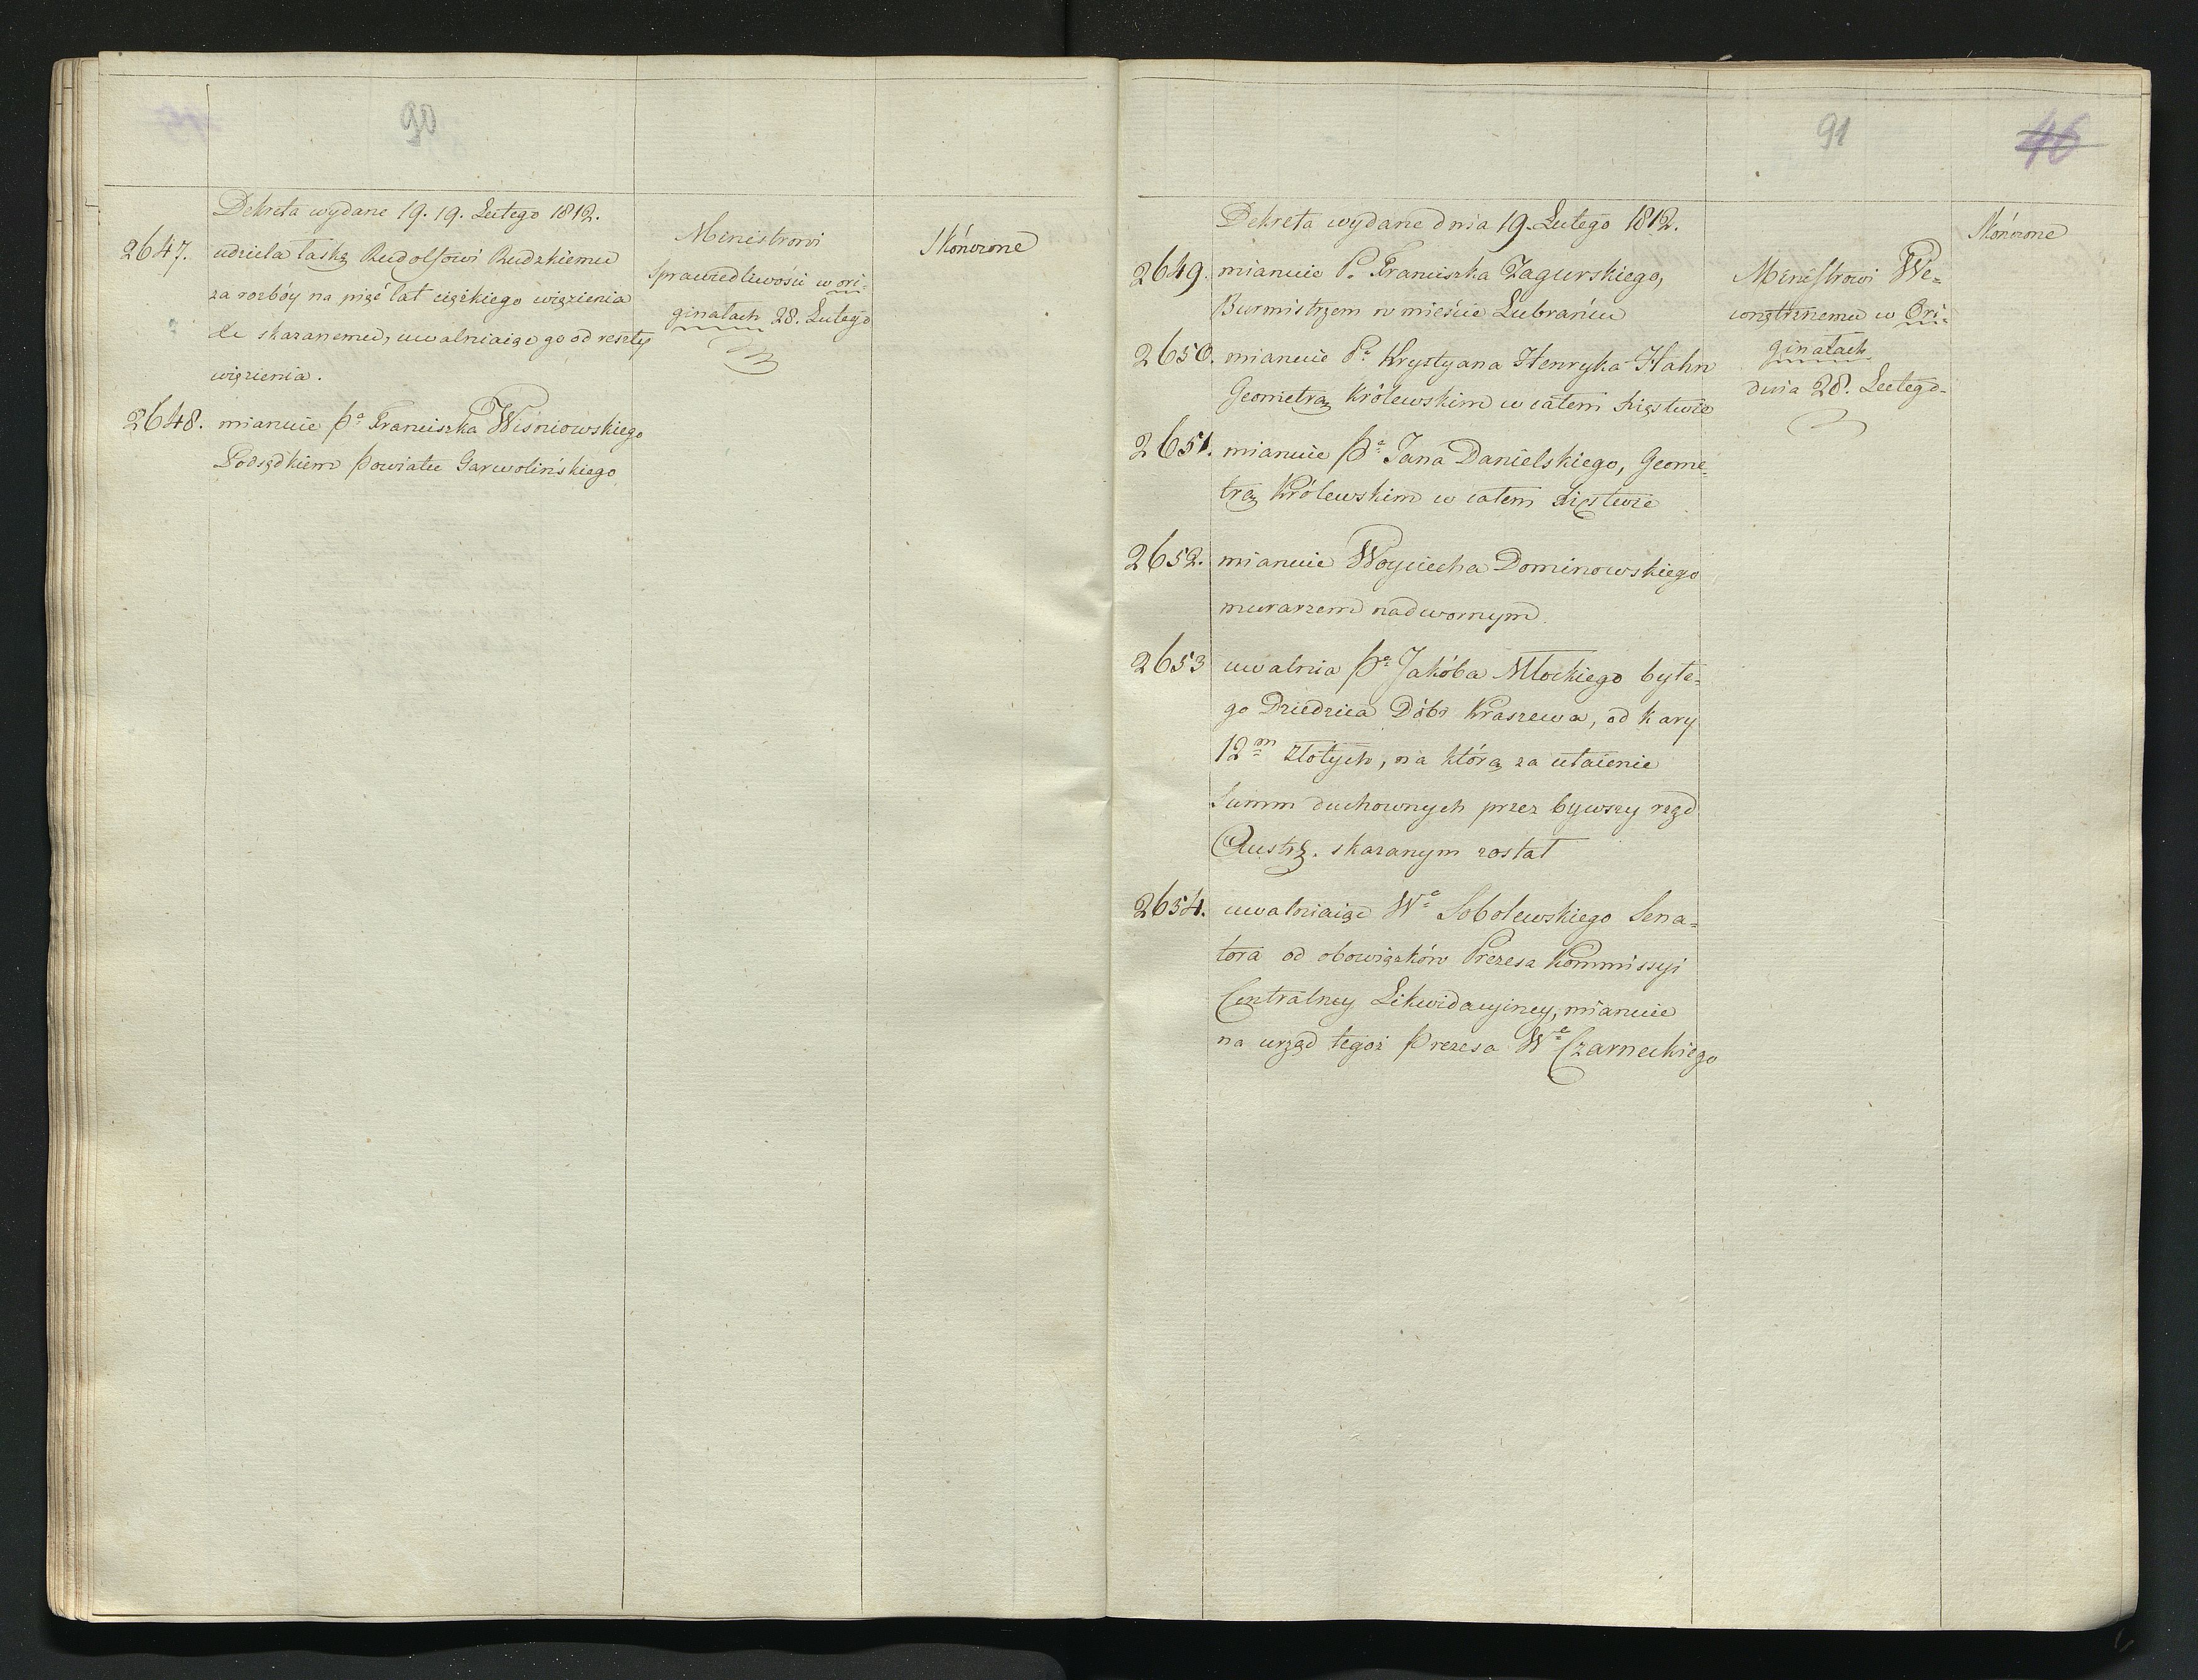 90
Dekreta wydane 19. 19. Lutego 1812.
2647. udziela łaskę Rudolfowi Rudzkiemu
za rozbóy na pięć lat ciężkiego więzienia
skazanemu, uwalniaiąc go od reszty
więzienia.
2648. mianuie Pa Franciszka Wiśniowskiego
Podsędkiem Powiatu Garwolińskiego
Ministrowi
Sprawiedliwości w ori-
ginałach 28. Lutego
Skończone
91
46
Dekreta wydane dnia 19. Lutego 1812.
2649. mianuie P. Franciszka Zagurskiego,
Burmistrzem w mieście Lubrańcu
2650. mianuie Pa Krystyana Henryka Hahn
Geometrą Królewskim w całem Xięstwie
2651. mianuie Pa Jana Danielskiego, Geome-
trą Królewskim w całem Xięstwie
2652. mianuie Woyciecha Dominowskiego
murarzem nadwornym.
2653 uwalnia Pa Jakóba Młockiego byłe-
go Dziedzica Dóbr Kraszewa, od kary
12m złotych, na którą za utaienie
Summ duchownych przez bywszy rząd
Austr. skazanym został
2654. uwalniaiąc We Sobolewskiego Sena-
tora od obowiązków Prezesa Kommissyi
Centralney Likwidacyiney, mianuie
na urząd tegoż Prezesa We Czarneckiego
Ministrowi We-
wnętrznemu w Ori-
ginałach
dnia 28. Lutego.
Skończone